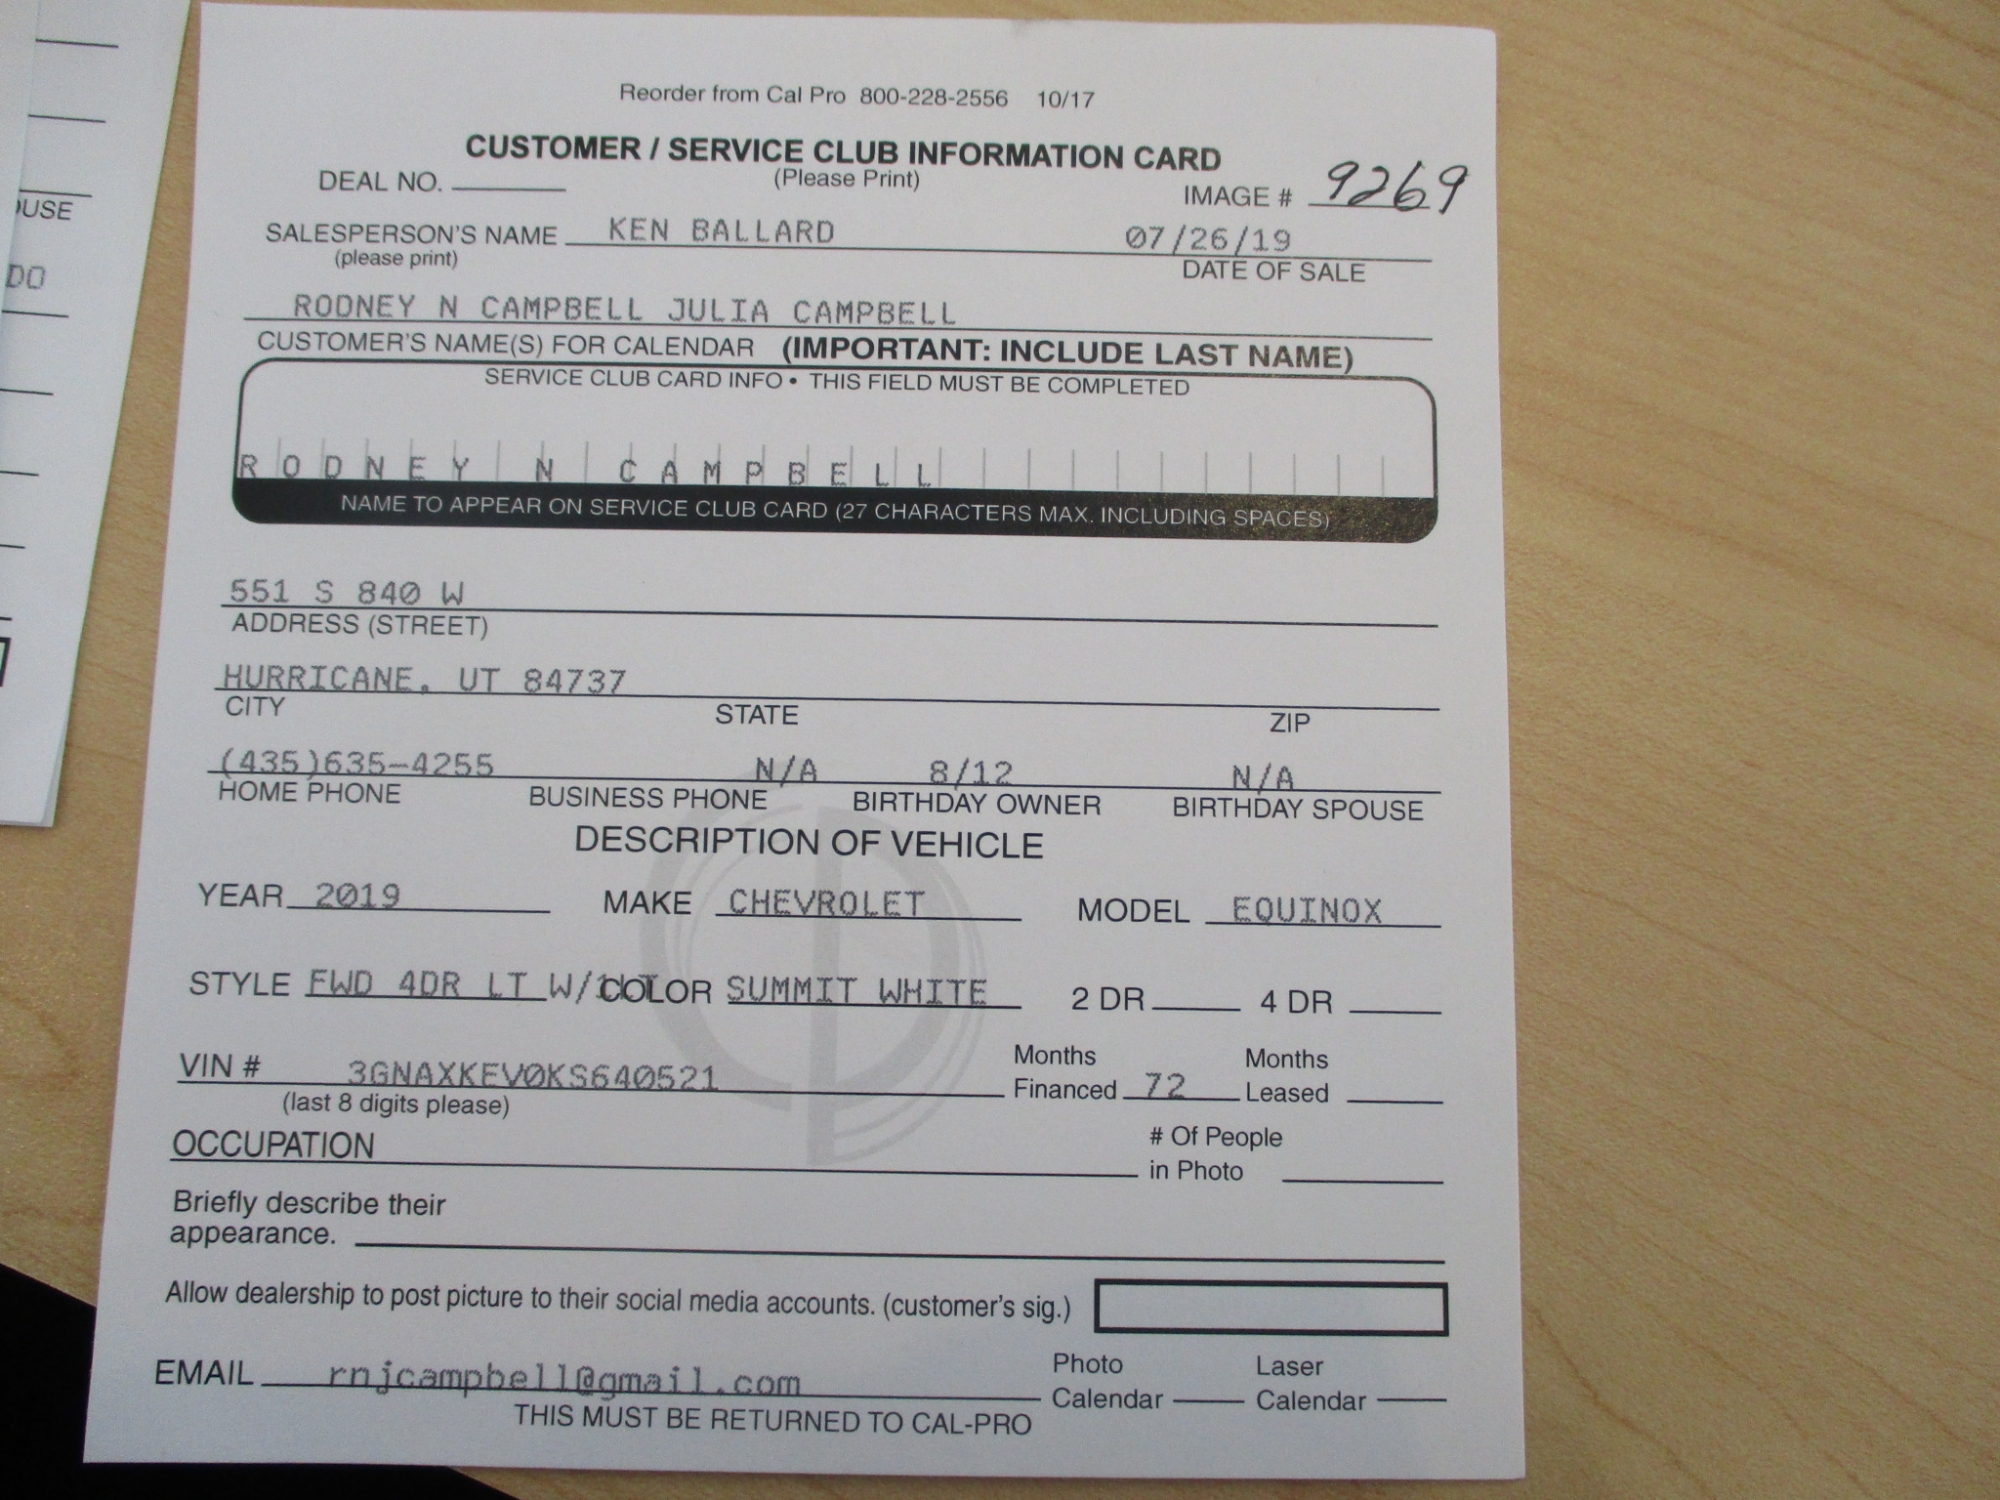 Reorder from Cal Pro 800-228-2556 10/17
CUSTOMER / SERVICE CLUB INFORMATION CARD
DEAL NO. (Please Print) IMAGE # 9269
SALESPERSON'S NAME KEN BALLARD 07/26/19
(please print) DATE OF SALE
RODNEY N CAMPBELL JULIA CAMPBELL
CUSTOMER'S NAME(S) FOR CALENDAR (IMPORTANT: INCLUDE LAST NAME)
SERVICE CLUB CARD INFO • THIS FIELD MUST BE COMPLETED
RODNEY N CAMPBELL
NAME TO APPEAR ON SERVICE CLUB CARD (27 CHARACTERS MAX. INCLUDING SPACES)
551 S 840 W
ADDRESS (STREET)
HURRICANE, UT 84737
CITY STATE ZIP
(435)635-4255 N/A 8/12 N/A
HOME PHONE BUSINESS PHONE BIRTHDAY OWNER BIRTHDAY SPOUSE
DESCRIPTION OF VEHICLE
YEAR 2019 MAKE CHEVROLET MODEL EQUINOX
STYLE FWD 4DR LT W/ COLOR SUMMIT WHITE 2 DR 4 DR
VIN # 3GNAXKEV0KS640521 Months Financed 72 Months Leased
(last 8 digits please)
OCCUPATION # Of People in Photo
Briefly describe their
appearance.
Allow dealership to post picture to their social media accounts. (customer's sig.)
EMAIL rnjcampbell@gmail.com Photo Calendar Laser Calendar
THIS MUST BE RETURNED TO CAL-PRO